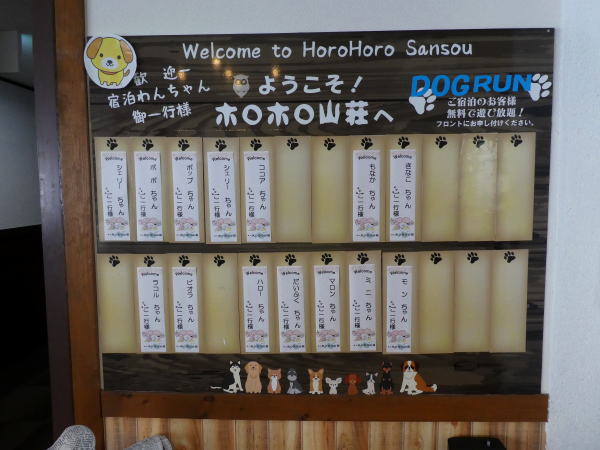 Welcome to HoroHoro Sansou
歓迎
宿泊わんちゃん
御一行様
ようこそ!
ホロホロ山荘へ
DOGRUN
ご宿泊のお客様
無料で遊び放題!
フロントにお申し付けください。
Welcome
シェリー ちゃん
ご一行様
Welcome
ポポ ちゃん
ご一行様
Welcome
ポップ ちゃん
ご一行様
Welcome
シェリー ちゃん
ご一行様
Welcome
ココア ちゃん
ご一行様
Welcome
もなか ちゃん
ご一行様
Welcome
きなこ ちゃん
ご一行様
Welcome
ラコル ちゃん
ご一行様
Welcome
ビオラ ちゃん
ご一行様
Welcome
ハロー ちゃん
ご一行様
Welcome
だいふく ちゃん
ご一行様
Welcome
マロン ちゃん
ご一行様
Welcome
ミニ ちゃん
ご一行様
Welcome
モン ちゃん
ご一行様